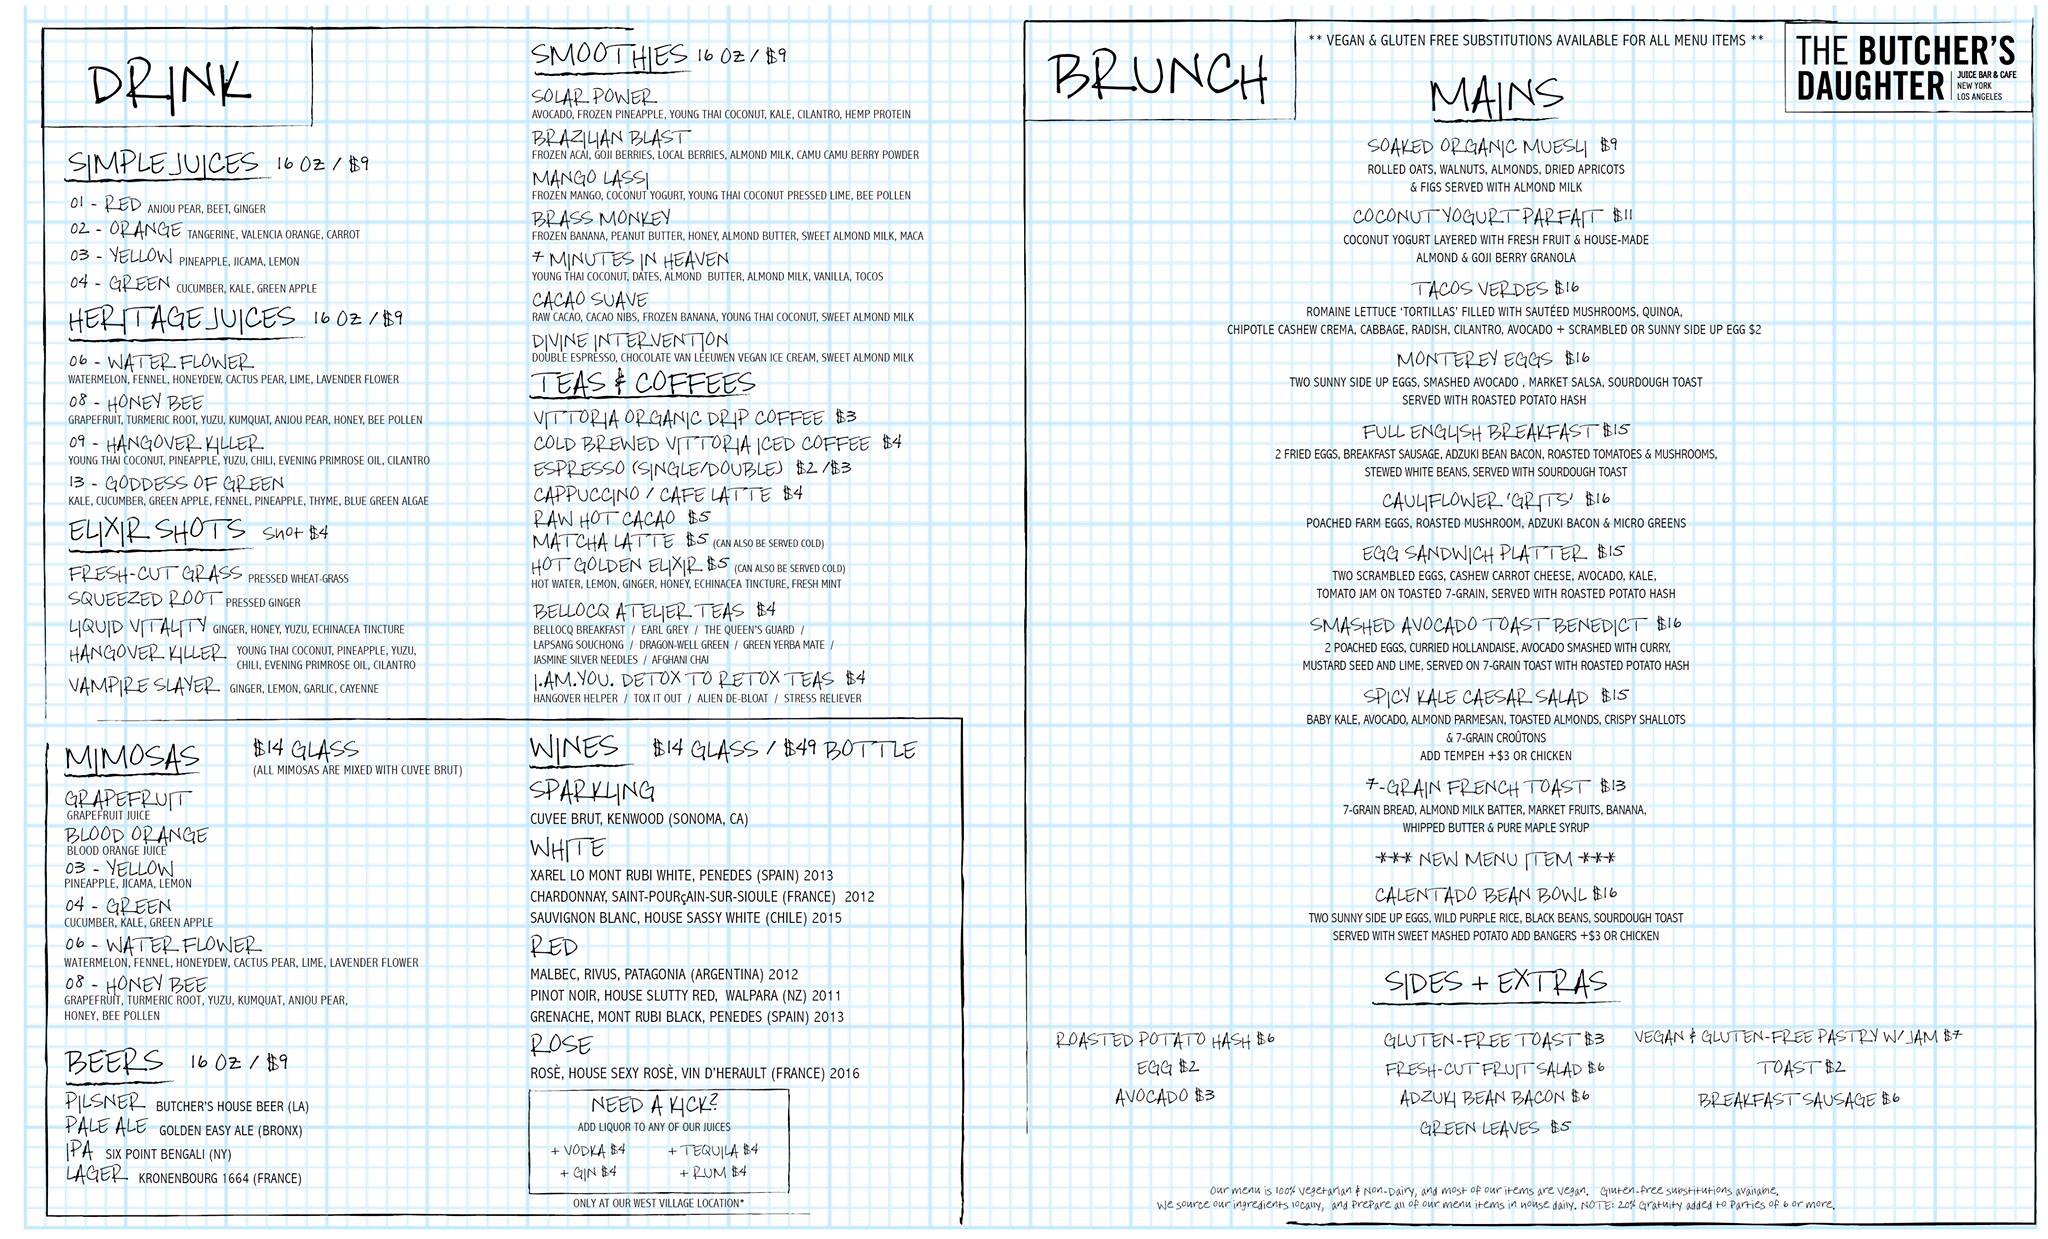 DRINK
SIMPLE JUICES 16 OZ / $9
01 - RED ANJOU PEAR, BEET, GINGER
02 - ORANGE TANGERINE, VALENCIA ORANGE, CARROT
03 - YELLOW PINEAPPLE, JICAMA, LEMON
04 - GREEN CUCUMBER, KALE, GREEN APPLE
HERITAGE JUICES 16 OZ / $9
06 - WATER FLOWER
WATERMELON, FENNEL, HONEYDEW, CACTUS PEAR, LIME, LAVENDER FLOWER
08 - HONEY BEE
GRAPEFRUIT, TURMERIC ROOT, YUZU, KUMQUAT, ANJOU PEAR, HONEY, BEE POLLEN
09 - HANGOVER KILLER
YOUNG THAI COCONUT, PINEAPPLE, YUZU, CHILI, EVENING PRIMROSE OIL, CILANTRO
13 - GODDESS OF GREEN
KALE, CUCUMBER, GREEN APPLE, FENNEL, PINEAPPLE, THYME, BLUE GREEN ALGAE
ELIXIR SHOTS Shot $4
FRESH-CUT GRASS PRESSED WHEAT-GRASS
SQUEEZED ROOT PRESSED GINGER
LIQUID VITALITY GINGER, HONEY, YUZU, ECHINACEA TINCTURE
HANGOVER KILLER YOUNG THAI COCONUT, PINEAPPLE, YUZU,
CHILI, EVENING PRIMROSE OIL, CILANTRO
VAMPIRE SLAYER GINGER, LEMON, GARLIC, CAYENNE
SMOOTHIES 16 OZ / $9
SOLAR POWER
AVOCADO, FROZEN PINEAPPLE, YOUNG THAI COCONUT, KALE, CILANTRO, HEMP PROTEIN
BRAZILIAN BLAST
FROZEN ACAI, GOJI BERRIES, LOCAL BERRIES, ALMOND MILK, CAMU CAMU BERRY POWDER
MANGO LASSI
FROZEN MANGO, COCONUT YOGURT, YOUNG THAI COCONUT PRESSED LIME, BEE POLLEN
BRASS MONKEY
FROZEN BANANA, PEANUT BUTTER, HONEY, ALMOND BUTTER, SWEET ALMOND MILK, MACA
7 MINUTES IN HEAVEN
YOUNG THAI COCONUT, DATES, ALMOND BUTTER, ALMOND MILK, VANILLA, TOCOS
CACAO SUAVE
RAW CACAO, CACAO NIBS, FROZEN BANANA, YOUNG THAI COCONUT, SWEET ALMOND MILK
DIVINE INTERVENTION
DOUBLE ESPRESSO, CHOCOLATE VAN LEEUWEN VEGAN ICE CREAM, SWEET ALMOND MILK
TEAS & COFFEES
VITTORIA ORGANIC DRIP COFFEE $3
COLD BREWED VITTORIA ICED COFFEE $4
ESPRESSO (SINGLE/DOUBLE) $2 /$3
CAPPUCCINO / CAFE LATTE $4
RAW HOT CACAO $5
MATCHA LATTE $5 (CAN ALSO BE SERVED COLD)
HOT GOLDEN ELIXIR $5 (CAN ALSO BE SERVED COLD)
HOT WATER, LEMON, GINGER, HONEY, ECHINACEA TINCTURE, FRESH MINT
BELLOCQ ATELIER TEAS $4
BELLOCQ BREAKFAST / EARL GREY / THE QUEEN'S GUARD /
LAPSANG SOUCHONG / DRAGON-WELL GREEN / GREEN YERBA MATE /
JASMINE SILVER NEEDLES / AFGHANI CHAI
I.AM.YOU. DETOX TO RETOX TEAS $4
HANGOVER HELPER / TOX IT OUT / ALIEN DE-BLOAT / STRESS RELIEVER
MIMOSAS $14 GLASS
(ALL MIMOSAS ARE MIXED WITH CUVEE BRUT)
GRAPEFRUIT
GRAPEFRUIT JUICE
BLOOD ORANGE
BLOOD ORANGE JUICE
03 - YELLOW
PINEAPPLE, JICAMA, LEMON
04 - GREEN
CUCUMBER, KALE, GREEN APPLE
06 - WATER FLOWER
WATERMELON, FENNEL, HONEYDEW, CACTUS PEAR, LIME, LAVENDER FLOWER
08 - HONEY BEE
GRAPEFRUIT, TURMERIC ROOT, YUZU, KUMQUAT, ANJOU PEAR,
HONEY, BEE POLLEN
BEERS 16 OZ / $9
PILSNER BUTCHER'S HOUSE BEER (LA)
PALE ALE GOLDEN EASY ALE (BRONX)
IPA SIX POINT BENGALI (NY)
LAGER KRONENBOURG 1664 (FRANCE)
WINES $14 GLASS / $49 BOTTLE
SPARKLING
CUVEE BRUT, KENWOOD (SONOMA, CA)
WHITE
XAREL LO MONT RUBI WHITE, PENEDES (SPAIN) 2013
CHARDONNAY, SAINT-POURçAIN-SUR-SIOULE (FRANCE) 2012
SAUVIGNON BLANC, HOUSE SASSY WHITE (CHILE) 2015
RED
MALBEC, RIVUS, PATAGONIA (ARGENTINA) 2012
PINOT NOIR, HOUSE SLUTTY RED, WALPARA (NZ) 2011
GRENACHE, MONT RUBI BLACK, PENEDES (SPAIN) 2013
ROSE
ROSÈ, HOUSE SEXY ROSÈ, VIN D'HERAULT (FRANCE) 2016
NEED A KICK?
ADD LIQUOR TO ANY OF OUR JUICES
+ VODKA $4 + TEQUILA $4
+ GIN $4 + RUM $4
ONLY AT OUR WEST VILLAGE LOCATION*
BRUNCH
** VEGAN & GLUTEN FREE SUBSTITUTIONS AVAILABLE FOR ALL MENU ITEMS **
THE BUTCHER'S
DAUGHTER
JUICE BAR & CAFE
NEW YORK
LOS ANGELES
MAINS
SOAKED ORGANIC MUESLI $9
ROLLED OATS, WALNUTS, ALMONDS, DRIED APRICOTS
& FIGS SERVED WITH ALMOND MILK
COCONUT YOGURT PARFAIT $11
COCONUT YOGURT LAYERED WITH FRESH FRUIT & HOUSE-MADE
ALMOND & GOJI BERRY GRANOLA
TACOS VERDES $16
ROMAINE LETTUCE 'TORTILLAS' FILLED WITH SAUTÉED MUSHROOMS, QUINOA,
CHIPOTLE CASHEW CREMA, CABBAGE, RADISH, CILANTRO, AVOCADO + SCRAMBLED OR SUNNY SIDE UP EGG $2
MONTEREY EGGS $16
TWO SUNNY SIDE UP EGGS, SMASHED AVOCADO , MARKET SALSA, SOURDOUGH TOAST
SERVED WITH ROASTED POTATO HASH
FULL ENGLISH BREAKFAST $15
2 FRIED EGGS, BREAKFAST SAUSAGE, ADZUKI BEAN BACON, ROASTED TOMATOES & MUSHROOMS,
STEWED WHITE BEANS, SERVED WITH SOURDOUGH TOAST
CAULIFLOWER 'GRITS' $16
POACHED FARM EGGS, ROASTED MUSHROOM, ADZUKI BACON & MICRO GREENS
EGG SANDWICH PLATTER $15
TWO SCRAMBLED EGGS, CASHEW CARROT CHEESE, AVOCADO, KALE,
TOMATO JAM ON TOASTED 7-GRAIN, SERVED WITH ROASTED POTATO HASH
SMASHED AVOCADO TOAST BENEDICT $16
2 POACHED EGGS, CURRIED HOLLANDAISE, AVOCADO SMASHED WITH CURRY,
MUSTARD SEED AND LIME, SERVED ON 7-GRAIN TOAST WITH ROASTED POTATO HASH
SPICY KALE CAESAR SALAD $15
BABY KALE, AVOCADO, ALMOND PARMESAN, TOASTED ALMONDS, CRISPY SHALLOTS
& 7-GRAIN CROÛTONS
ADD TEMPEH +$3 OR CHICKEN
7-GRAIN FRENCH TOAST $13
7-GRAIN BREAD, ALMOND MILK BATTER, MARKET FRUITS, BANANA,
WHIPPED BUTTER & PURE MAPLE SYRUP
*** NEW MENU ITEM ***
CALENTADO BEAN BOWL $16
TWO SUNNY SIDE UP EGGS, WILD PURPLE RICE, BLACK BEANS, SOURDOUGH TOAST
SERVED WITH SWEET MASHED POTATO ADD BANGERS +$3 OR CHICKEN
SIDES + EXTRAS
ROASTED POTATO HASH $6
EGG $2
AVOCADO $3
GLUTEN-FREE TOAST $3
FRESH-CUT FRUIT SALAD $6
ADZUKI BEAN BACON $6
GREEN LEAVES $5
VEGAN & GLUTEN-FREE PASTRY W/JAM $7
TOAST $2
BREAKFAST SAUSAGE $6
Our menu is 100% Vegetarian & Non-Dairy, and most of our items are vegan. Gluten-free substitutions available.
We source our ingredients locally, and prepare all of our menu items in house daily. NOTE: 20% Gratuity added to Parties of 6 or more.